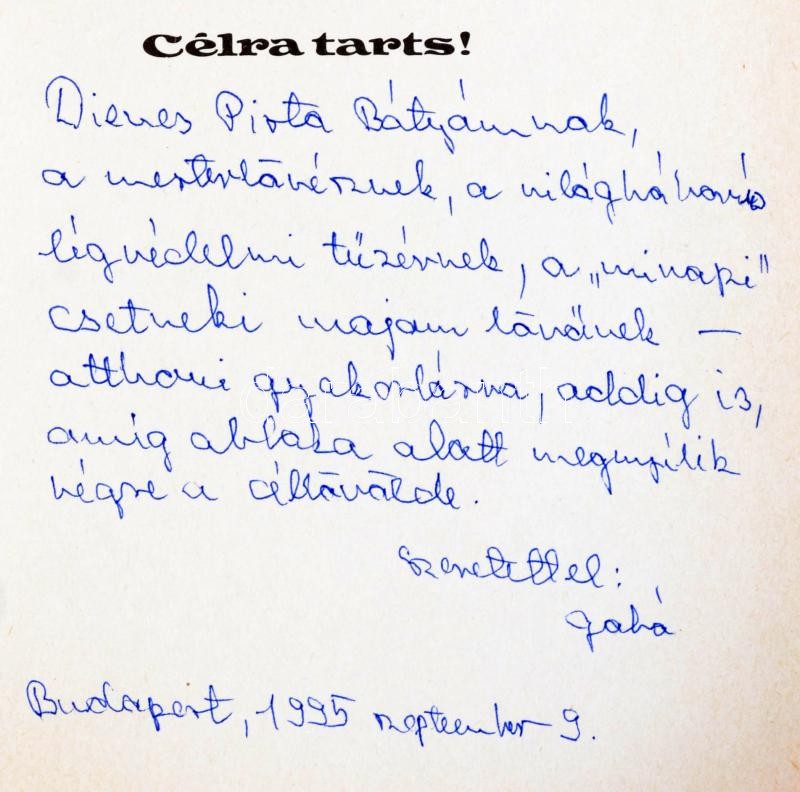 Célra tarts!
Dienes Pista Bátyámnak,
a mesterlövésznek, a világháborús
légvédelmi tüzérnek, a „minapi”
csetneki majom lövőinek —
otthoni gyakorlásra, addig is,
amíg ablaka alatt megnyílik
végre a céllövölde.
Szeretettel:
Budapest, 1995 szeptember 9.